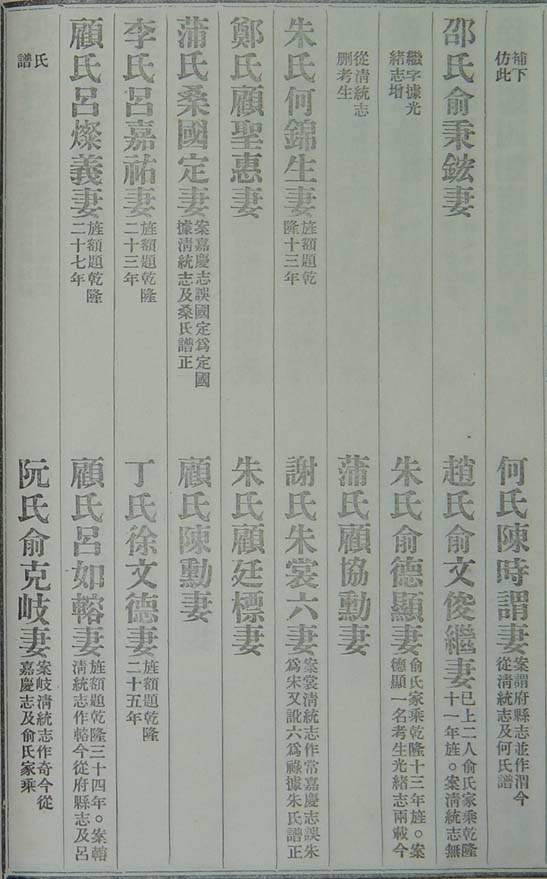 補下
仿此
何氏陳時謂妻
案謂府縣志並作渭今
從淸統志及何氏譜
邵氏俞秉鉉妻
趙氏俞文俊繼妻
已上二人俞氏家乘乾隆
十一年旌○案淸統志無
繼字據光
緒志增
朱氏俞德顯妻
俞氏家乘乾隆十三年旌○案
德顯一名考生光緒志兩載今
從淸統志
删考生
蒲氏顧協勳妻
朱氏何錦生妻
旌額題乾
隆十三年
謝氏朱裳六妻
案裳淸統志作常嘉慶志誤朱
爲宋又訛六爲祿據朱氏譜正
鄭氏顧聖惠妻
朱氏顧廷標妻
蒲氏桑國定妻
案嘉慶志誤國定爲定國
據淸統志及桑氏譜正
顧氏陳勳妻
李氏呂嘉祐妻
旌額題乾隆
二十三年
丁氏徐文德妻
旌額題乾隆
二十五年
顧氏呂燦義妻
旌額題乾隆
二十七年
顧氏呂如妻
旌額題乾隆三十四年○案
淸統志作今從府縣志及呂
氏
譜
阮氏俞克岐妻
案岐淸統志作奇今從
嘉慶志及俞氏家乘